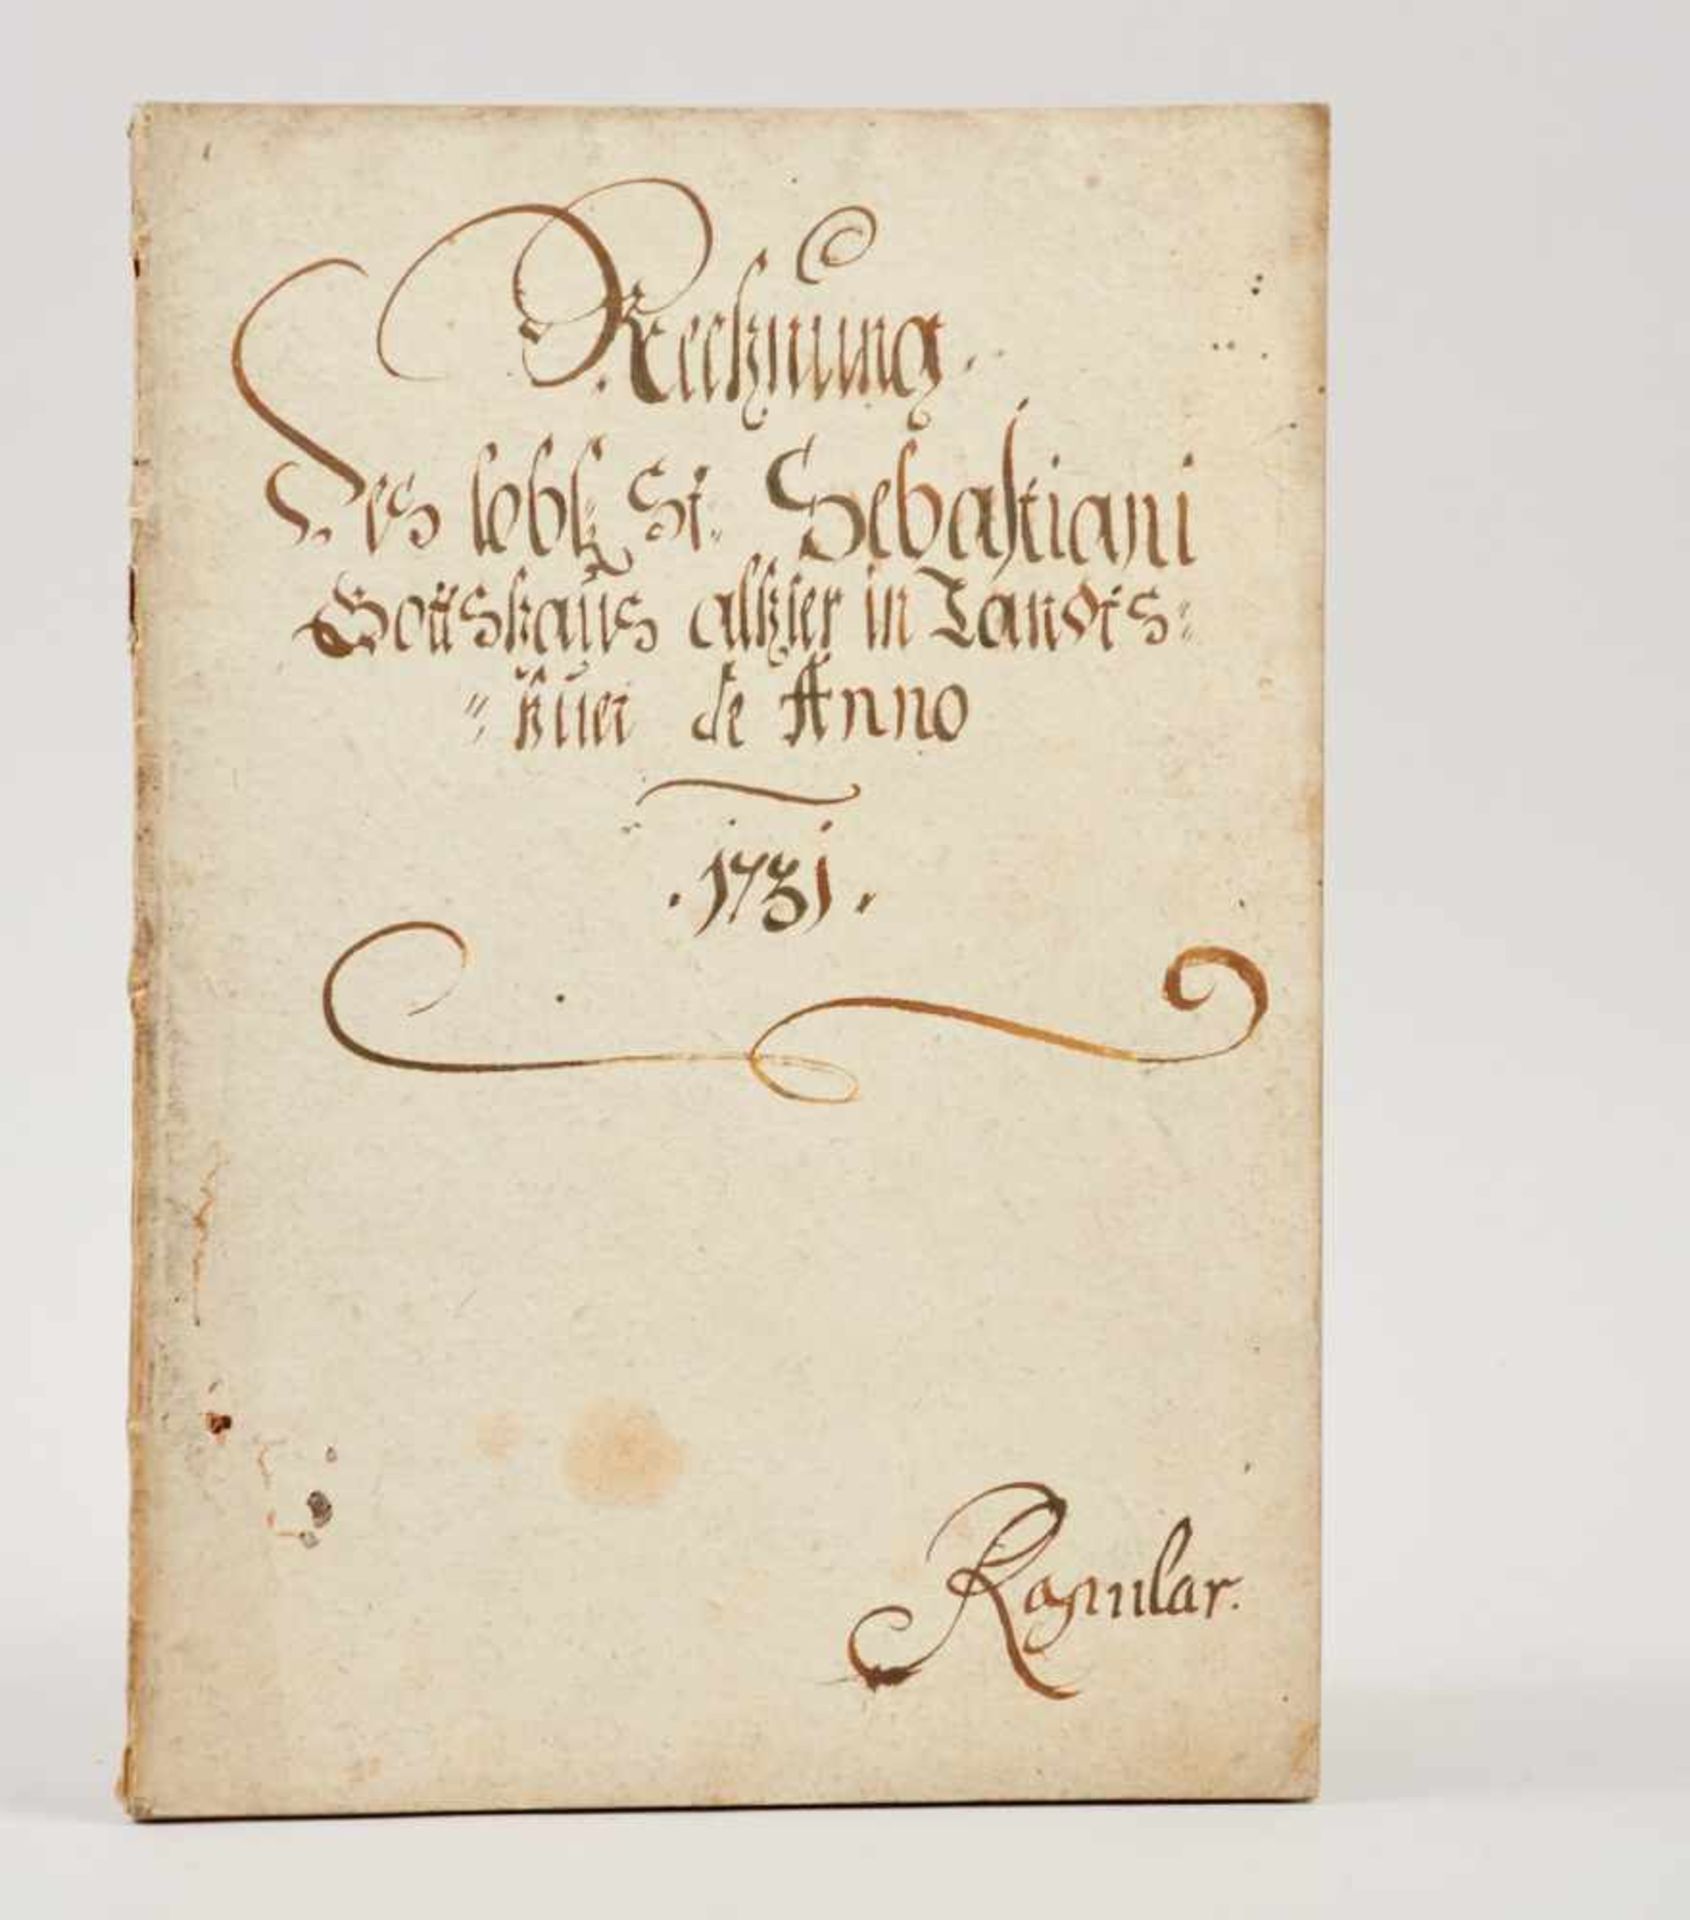 Rechnung.
Des lobl: St: Sebastiani
Gottshauß alhier in Landts=
=huet de Anno
. 1731 .
Regular.